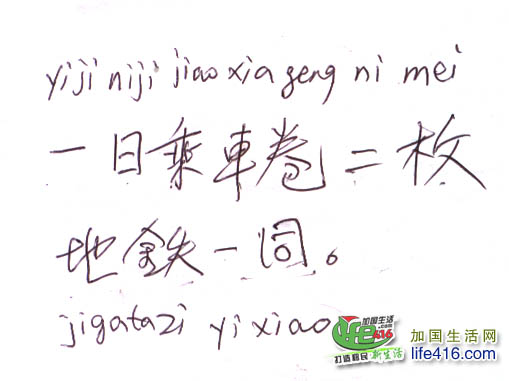 yiji niji jiao xia geng ni mei
一日乗車巻二枚
地鉄一同。
jigatazi yi xiao
加国生活
life416
打造移民新生活
加国生活网
life416.com